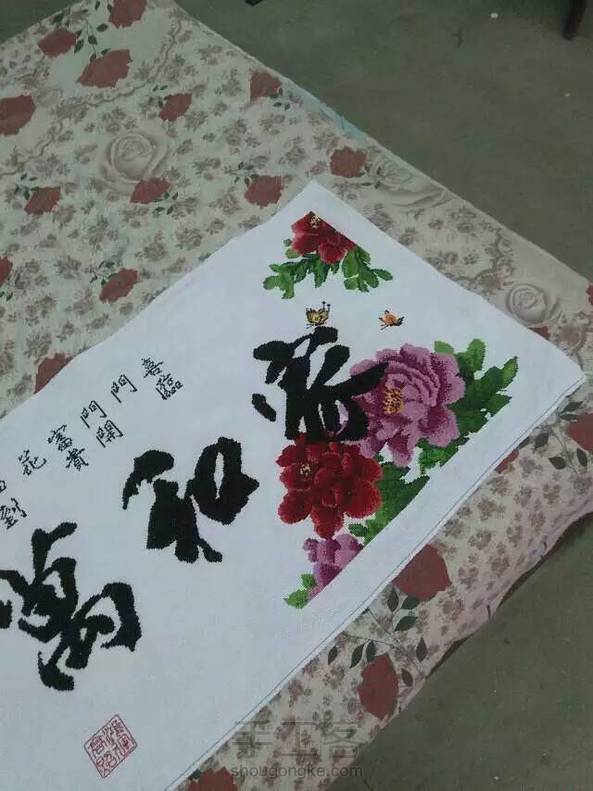 家和萬
喜臨
門
門開
富貴
花
鴻運
高照
手工客
shougongke.com